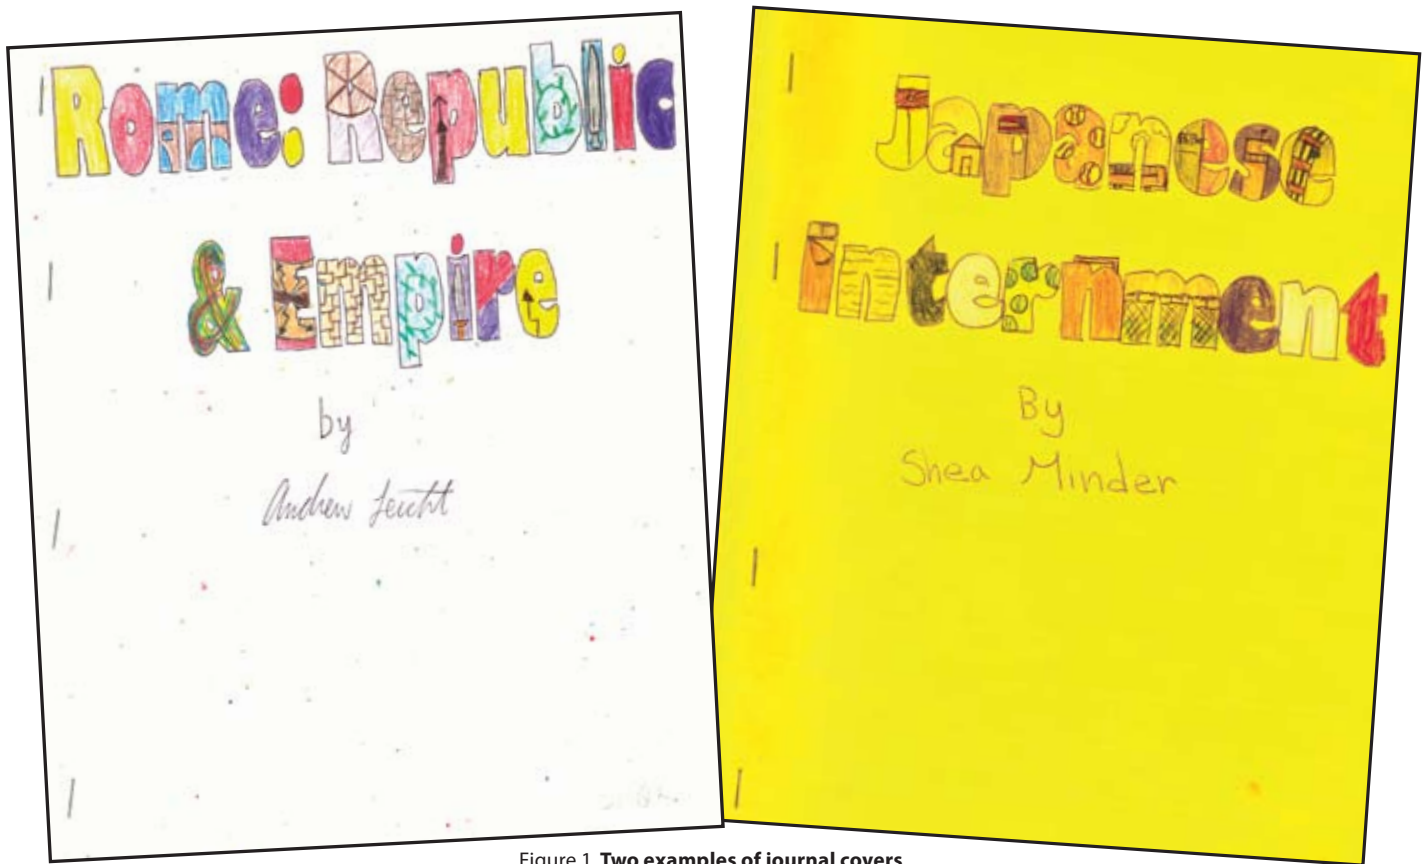 Rome: Republic
& Empire
by
Andrew Leicht
Japanese
Internment
By
Shea Minder
Figure 1. Two examples of journal covers